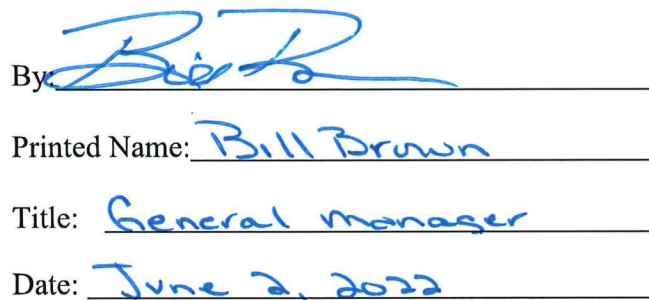 By:
Printed Name: Bill Brown
Title: General Manager
Date: June 2, 2022